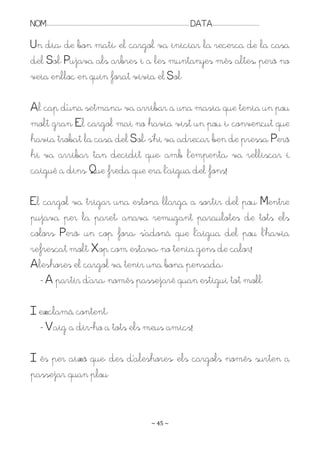 NOM DATA
Un dia de bon matí, el cargol va iniciar la recerca de la casa
del Sol. Pujava als arbres i a les muntanyes més altes, però no
veia enlloc en quin forat vivia el Sol.
Al cap d'una setmana, va arribar a una masia que tenia un pou
molt gran. El cargol mai no havia vist un pou i, convençut que
havia trobat la casa del Sol, s'hi va adreçar ben de pressa. Però
hi va arribar tan decidit que amb l'empenta va relliscar i
caigué a dins. Que freda que era l'aigua del fons!
El cargol va trigar una estona llarga a sortir del pou. Mentre
pujava per la paret anava remugant paraulotes de tots els
colors. Però un cop fora s'adonà que l'aigua del pou l'havia
refrescat molt. Xop com estava, no tenia gens de calor!
Aleshores el cargol va tenir una bona pensada:
- A partir d'ara, només passejaré quan estigui tot moll.
I exclamà content:
- Vaig a dir-ho a tots els meus amics!
I és per això que, des d'aleshores, els cargols només surten a
passejar quan plou.
~ 45 ~